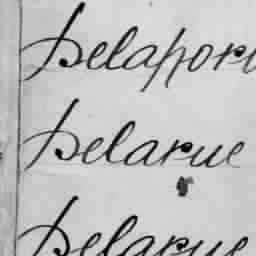 Delapor
Delarue
Delarue